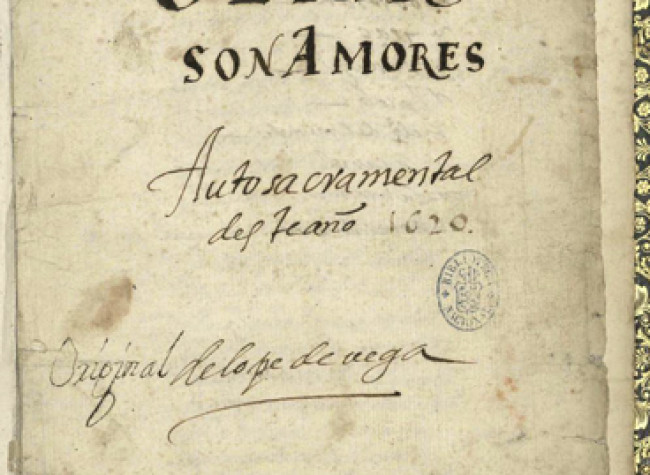 SON AMORES
Auto sacramental
deste año 1620.
Original de lope de vega